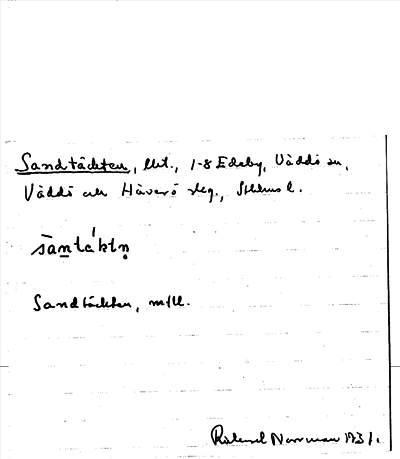 Sandtäckten, 1-8 Edeby, Väddö sn,
Väddö och Häverö skg., Sthlms l.
Sandtäckten, m/ll.
Roland Norrman 1931.